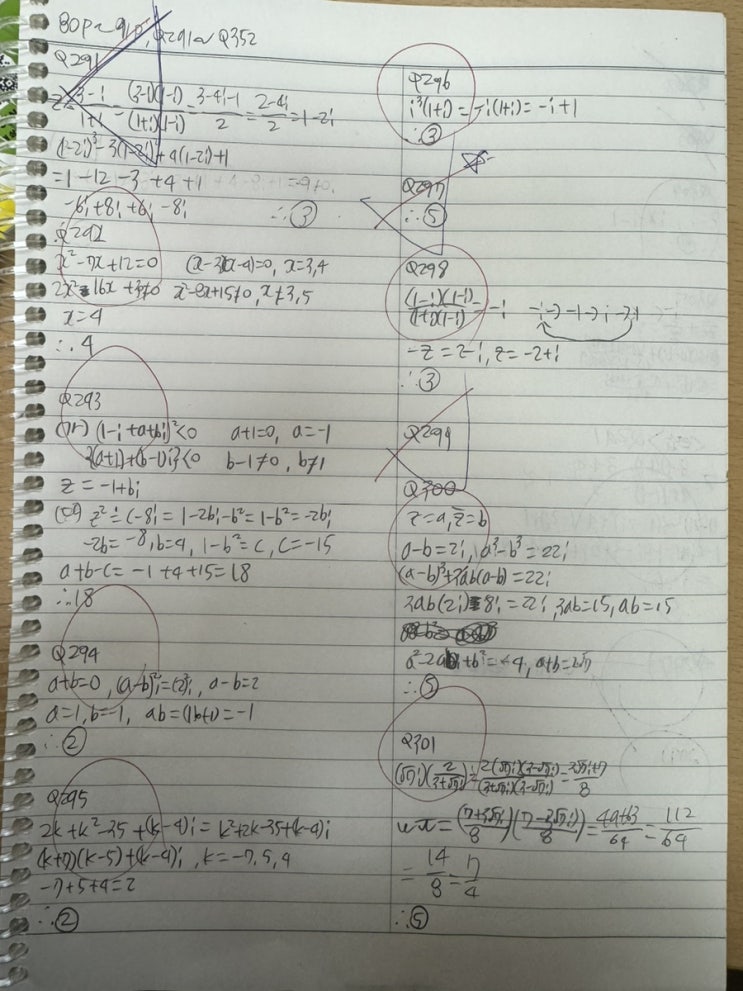 80p~91p, Q291~Q352
Q291
z = \frac{3-i}{1+i} = \frac{(3-i)(1-i)}{(1+i)(1-i)} = \frac{3-4i-1}{2} = \frac{2-4i}{2} = 1-2i
(1-2i)^3 - 3(1-2i)^2 + 4(1-2i)+1
= 1 -12 -3 +4 +1
-6i +8i +6i -8i ∴③
Q292
x^2-7x+12=0 (x-3)(x-4)=0, x=3,4
2x^2-16x+30≠0 x^2-8x+15≠0, x≠3,5
x=4
∴4
Q293
(1-i+a+bi)^2<0 a+1=0, a=-1
{(a+1)+(b-1)i}^2<0 b-1≠0, b≠1
z = -1+bi
z^2 = c-8i = 1-2bi-b^2 = 1-b^2=-2bi
-2b=-8, b=4, 1-b^2=c, c=-15
a+b-c = -1+4+15=18
∴18
Q294
a+b=0, (a-b)i=(2)i, a-b=2
a=1, b=-1, ab=(1)(-1)=-1
∴②
Q295
2k+k^2-35+(k-4)i = k^2+2k-35+(k-4)i
(k+7)(k-5)+(k-4)i, k=-7,5,4
-7+5+4=2
∴②
Q296
i^3(1+i) = -i(1+i) = -i+1
∴③
Q297
∴⑤
Q298
\frac{(1-i)(1-i)}{(1+i)(1-i)} = -i -i→-1→i→1
-z=2-i, z=-2+i
∴③
Q299
Q300
z=a, \bar{z}=b
a-b=2i, a^3-b^3=22i
(a-b)^3+3ab(a-b)=22i
3ab(2i)-8i=22i, 3ab=15, ab=15
a^2-2ab+b^2=-4, a+b=2√
∴⑤
Q301
(√7i)(\frac{2}{3+√7i}) = \frac{2(√7i)(3-√7i)}{(3+√7i)(3-√7i)} = \frac{3√7i+7}{8}
= (\frac{7+3√7i}{8})(\frac{7-3√7i}{8}) = \frac{49+63}{64} = \frac{112}{64}
= \frac{14}{8} = \frac{7}{4}
∴⑤